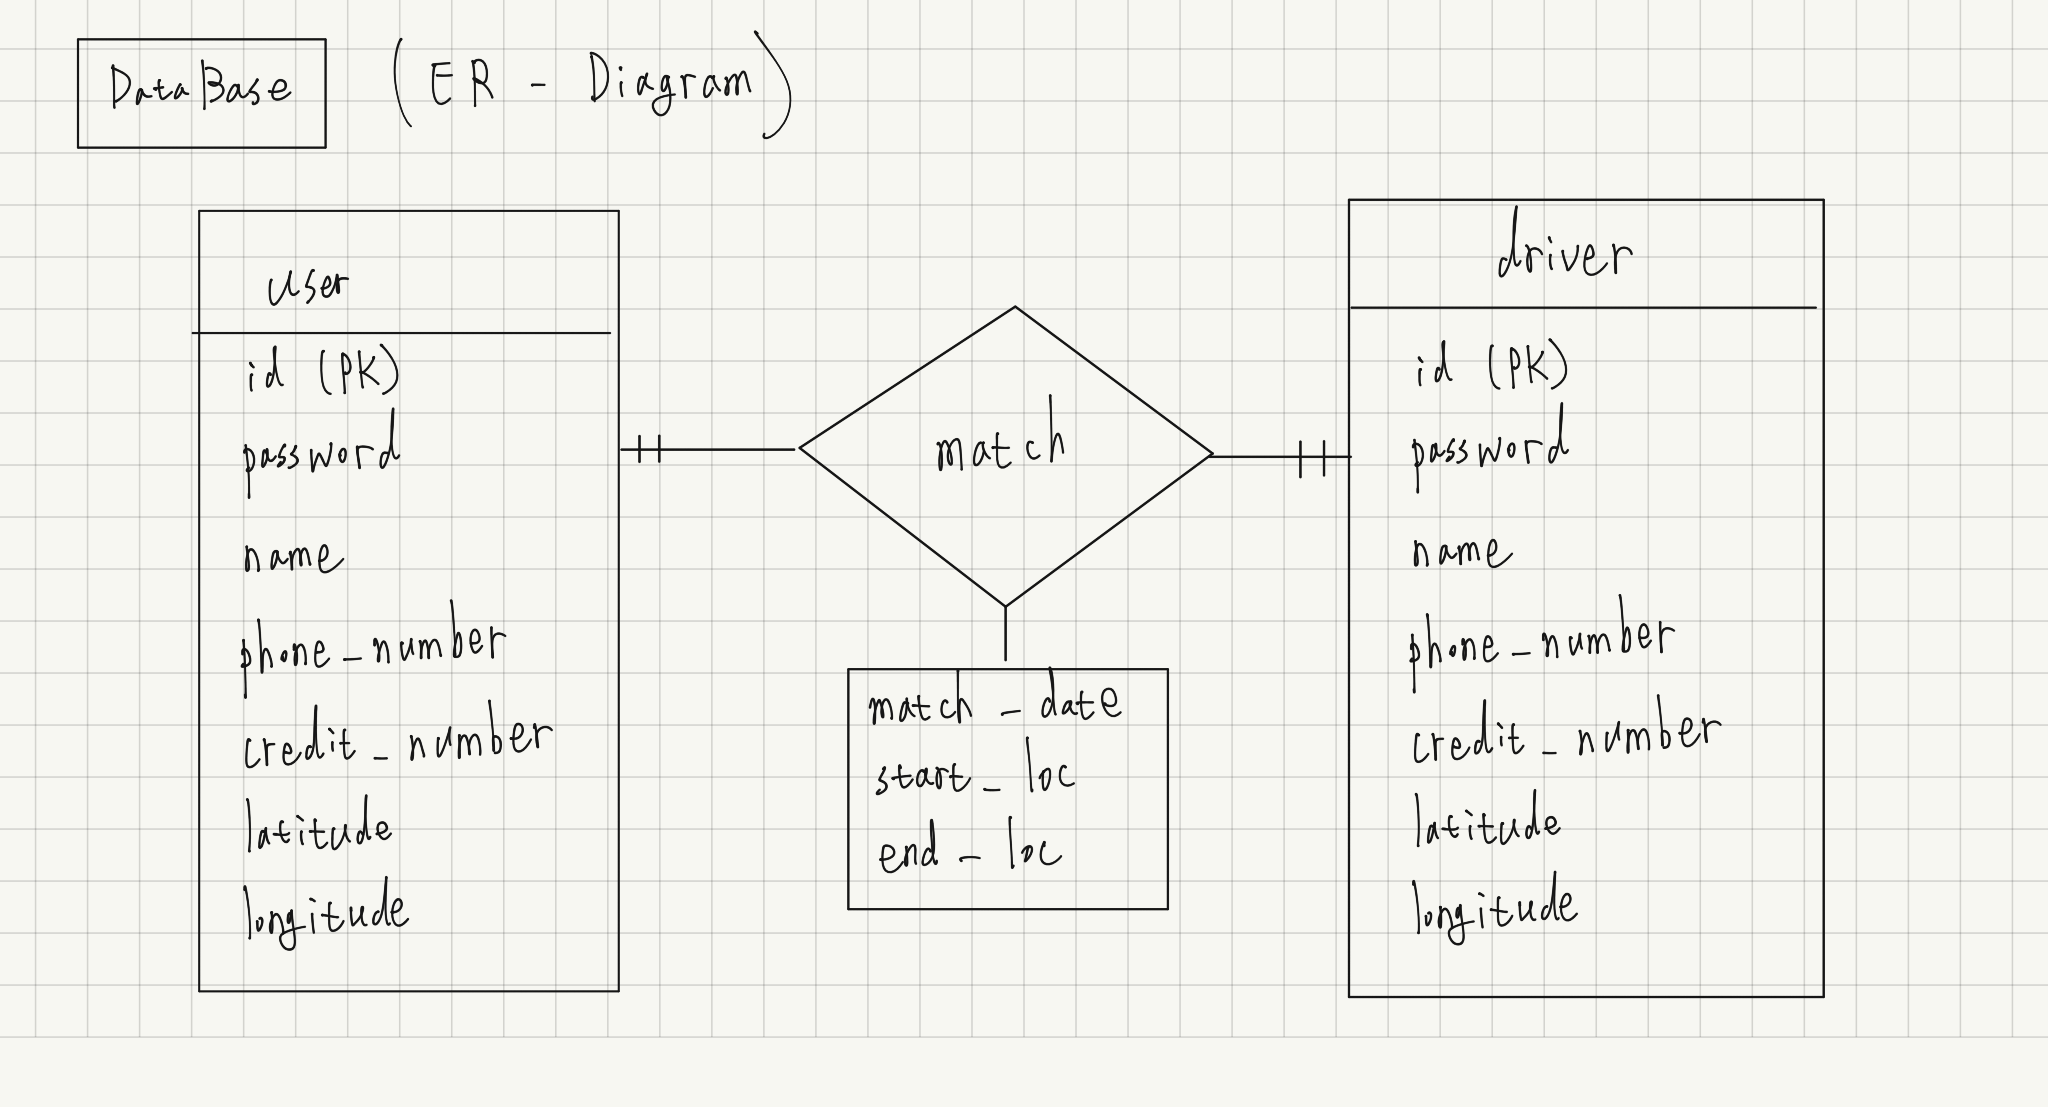 DataBase (ER - Diagram)
user
id (PK)
password
name
phone_number
credit_number
latitude
longitude
match
match_date
start_loc
end_loc
driver
id (PK)
password
name
phone_number
credit_number
latitude
longitude